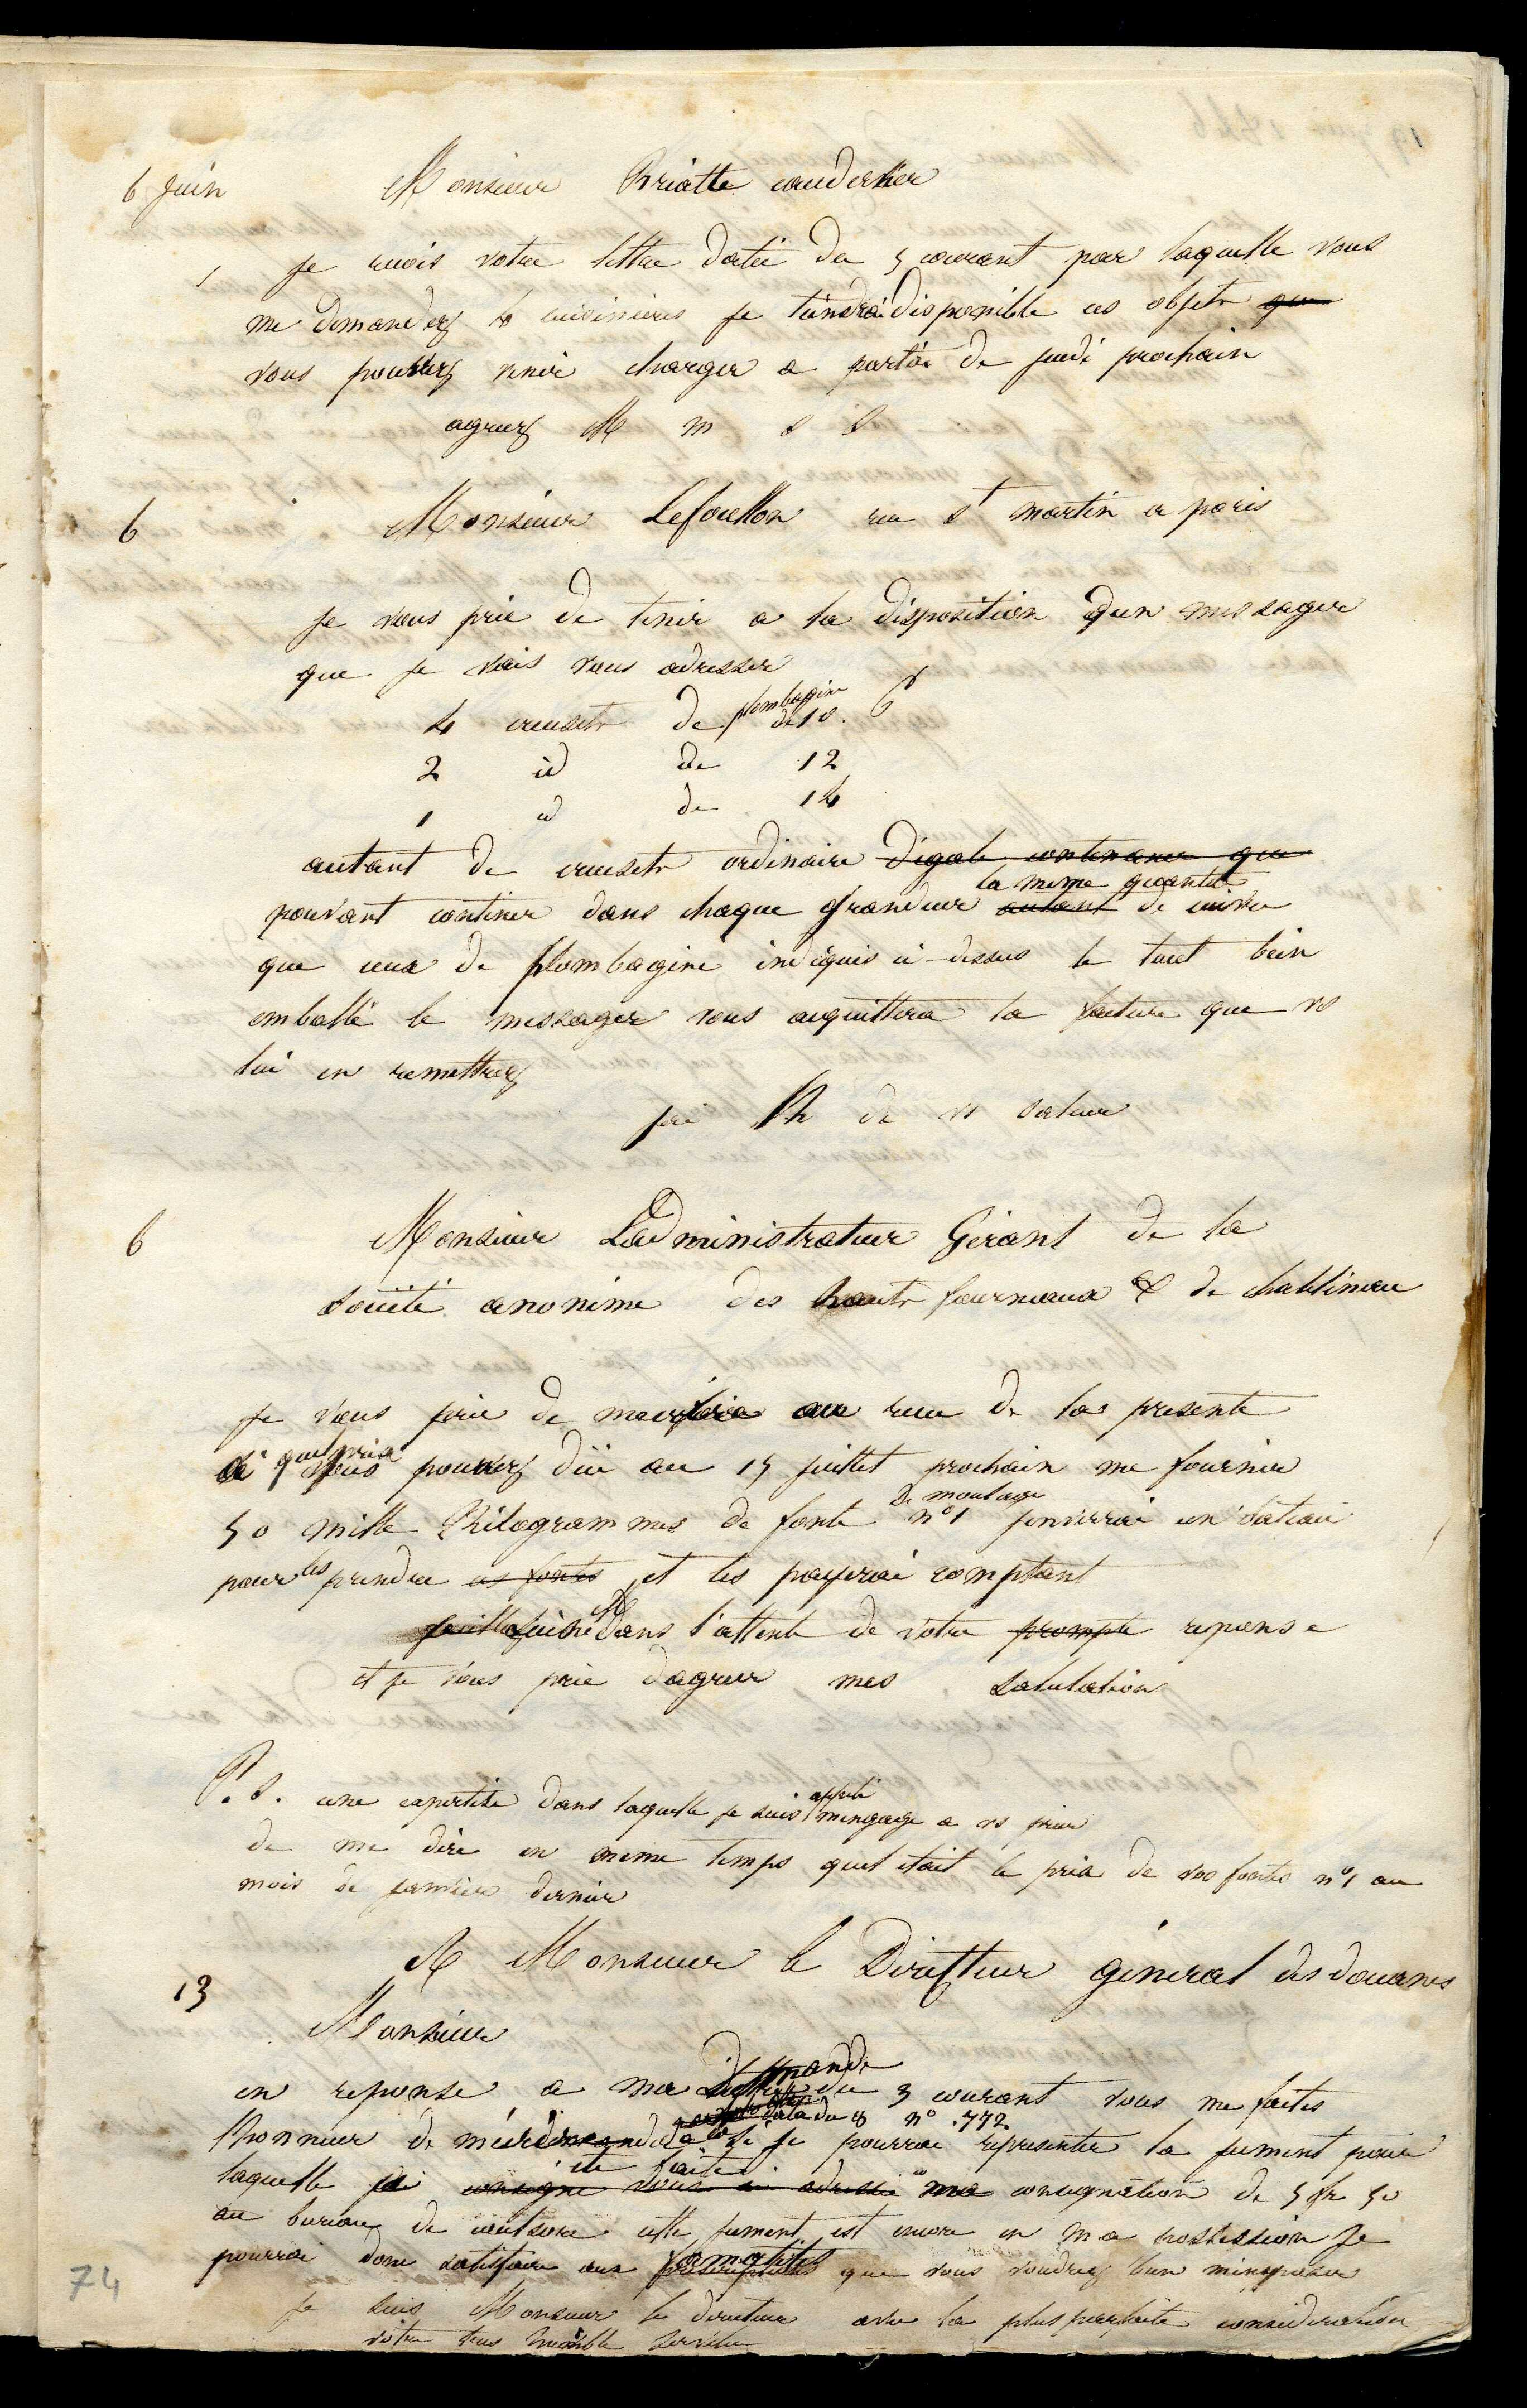 6 juin Monsieur Briatte couderlier
je recois votre lettre datée du 5 courant par laquelle vous
me demandez 4 cuisinieres je tiendrai disponible ces objets que
vous pouvez venir charger a partir de jeudi prochain
agreez M m s
6 Monsieur Lefoullon rue St martin a paris
je vous prie de tenir a la disposition dun messager
que je vais vous adresser
4 creusets de plombagine de 10
2 id de 12
1 id de 14
autant de creusets ordinaire d'egale contenance que
pouvant contenir dans chaque grandeur autant la meme quantité de cuivre
que ceux de plombagine indiqués ci-dessus le tout bien
emballé le messager vous acquittera la facture que vs
lui en remettrez
jai lh de vs saluer
6 Monsieur Ladministrateur Gérant de la
société anonime des hauts fourneaux & de chatelineau
je vous prie de mecrire au recu de la presente
a quel prix vous pouvez dici au 15 juillet prochain me fournir
50 mille Kilogrammes de fonte de moulage n° 1 jenverrai un bateau
pour les prendre ces fontes et les payerai comptant
M dans l'attente de votre prompte reponse
et je vous prie dagreer mes salutation
P.S. une expertise dans laquelle je suis appelé mengage a vs prier
de me dire en meme temps quel etait le prix de vos fontes n° 1 au
mois de janvier dernier
13 A Monsieur le Directeur géneral des douanes
Monsieur
en reponse a ma demande du 3 courant vous me faites
lhonneur de la date du 8 n° 772 si je pourrai representer la jument pour
laquelle jai consigné vous ai adressé été faite ma consignation de 5 fr 50
au bureau de cette jument est encore en ma possession je
pourrai donc satisfaire aux formalités que vous voudrez bien mimposer
je suis Monsieur le directeur avec la plus parfaite consideration
votre tres humble serviteur
74